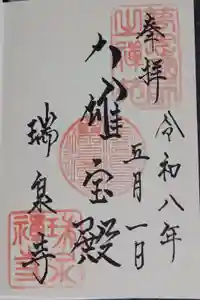 奉拝
令和八年
五月一日
大雄宝殿
瑞泉寺